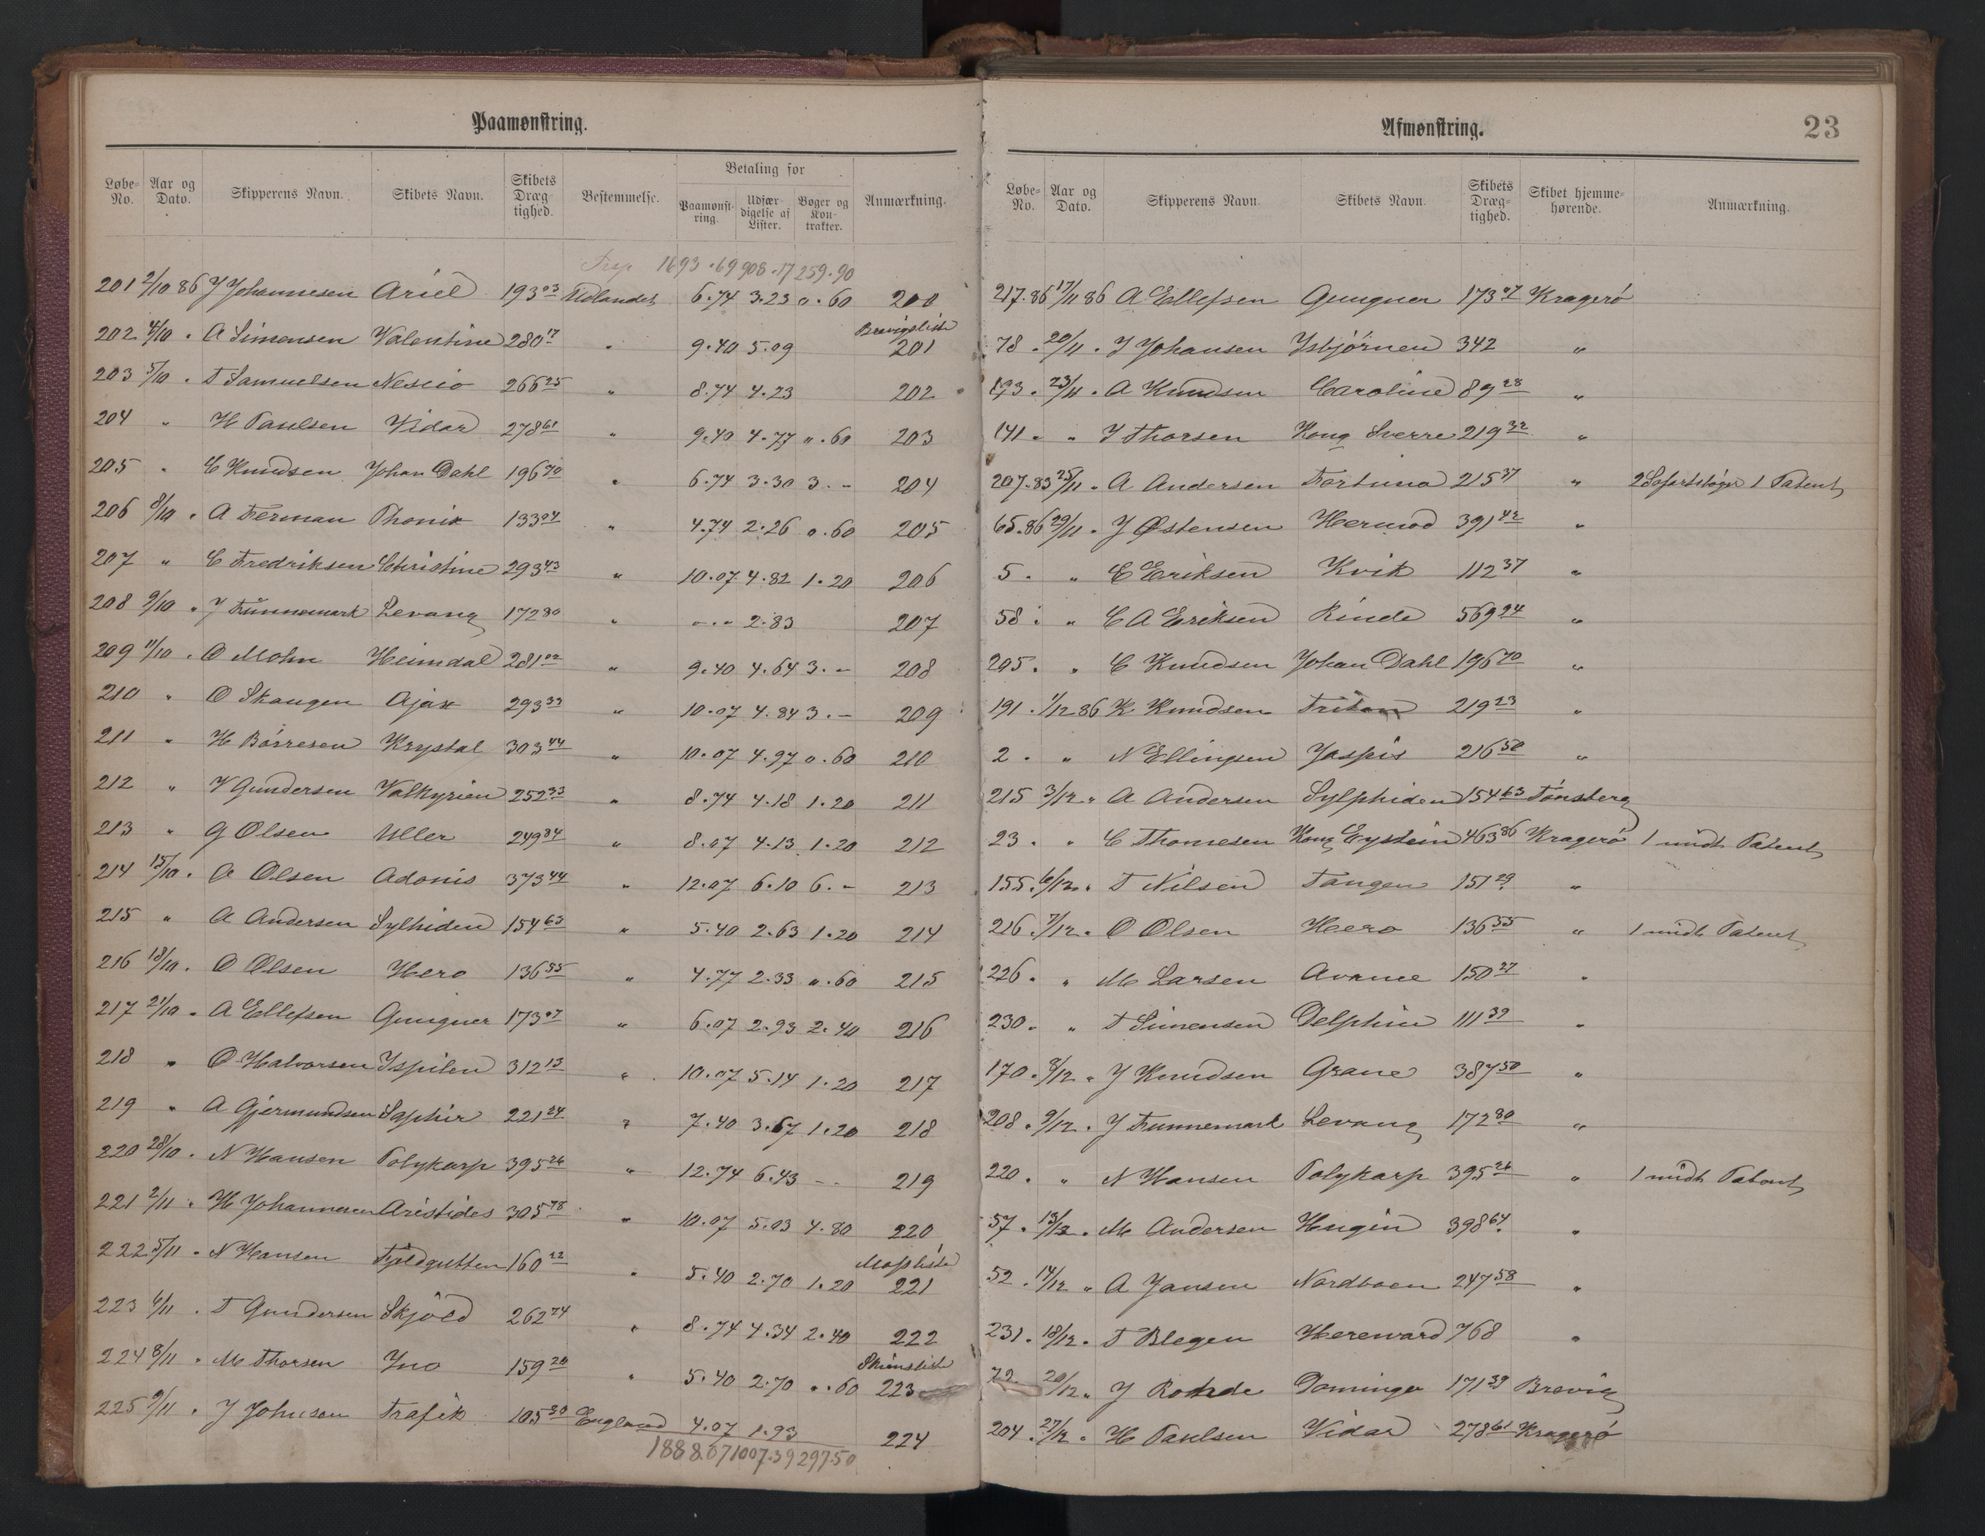 Paamønstring.
Løbe-No. Aar og Dato. Skipperens Navn. Skibets Navn. Skibets Dræg-tighed. Bestemmelse. Betaling for Paamønst-ring. Udfær-digelse af Lister. Bøger og Kon-trakter. Anmærkning.
1693.69 908.17 259.90
201 2/10 86 J Johannesen Ariel 193 03 Udlandet 6.74 3.23 0.60 200
202 4/10 " A Simensen Valentine 280 17 " 9.40 5.09 Brevigsliste 201
203 5/10 " T Samuelsen Nescio 266 25 " 8.74 4.23 202
204 " H Paulsen Vidar 278 61 " 9.40 4.77 ". 60 203
205 " C Knudsen Johan Dahl 196 70 " 6.74 3.30 3. - 204
206 8/10 " A Ferman Phonix 133 04 " 4.74 2.26 0.60 205
207 " C Fredriksen Christine 293 43 " 10.07 4.82 1.20 206
208 9/10 " J Funnemark Levang 172 80 " -.- 2.83 207
209 11/10 " O Mohn Heimdal 281 02 " 9.40 4.64 3. - 208
210 " O Skaugen Ajax 293 33 " 10.07 4.84 3. - 209
211 " H Børresen Krystal 303 44 " 10.07 4.97 0.60 210
212 " V Gundersen Valkyrien 252 33 " 8.74 4.18 1.20 211
213 " G Olsen Uller 249 84 " 8.07 4.13 1.20 212
214 15/10 " A Olsen Adonis 373 44 " 12.07 6.10 6. - 213
215 " A Andersen Sylhiden 154 63 " 5.40 2.63 1.20 214
216 18/10 " O Olsen Hero 136 55 " 4.77 2.33 ". 60 215
217 21/10 " A Ellefsen Gungner 173 07 " 6.07 2.93 2.40 216
218 " O Halvorsen Ispilen 312 13 " 10.07 5.14 1.20 217
219 " A Gjermundsen Saphir 221 24 " 7.40 3.67 1.20 218
220 28/10 " N Hansen Polykarp 395 26 " 12.74 6.43 - - 219
221 2/11 " H Johannesen Aristides 305 78 " 10.07 5.03 4.80 220
222 5/11 " N Hansen Fjeldgutten 160 22 " 5.40 2.70 1.20 Mossliste 221
223 6/11 " T Gundersen Skjöld 262 74 " 8.74 4.34 2.40 222
224 8/11 " M Thorsen Ino 159 20 " 5.40 2.70 ". 60 Skiensliste 223
225 9/11 " J Johnsen Trafik 105 80 England 4.07 1.93 224
1888.67 1007.39 297.50
Afmønstring. 23
Løbe-No. Aar og Dato. Skipperens Navn. Skibets Navn. Skibets Dræg-tighed. Skibet hjemme-hørende. Anmærkning.
217.86 17/11 86 A Ellefsen Gungner 173 07 Kragerø
78 . 20/11 " J Johansen Isbjørnen 342 "
193 . 23/11 " A Knudsen Caroline 89 28 "
141 " " J Thorsen Kong Sverre 219 32 "
207.85 25/11 " A Andersen Fortuna 215 37 " 2 Søfartsbøger 1 Patent
65.86 29/11 " J Østensen Hermod 391 42 "
5 . " C Eriksen Kvik 112 37 "
58 . " C A Eriksen Rinde 569 24 "
205 . " C Knudsen Johan Dahl 196 70 "
191 . 1/12 86 K Knudsen Triton 219 23 "
2 . " N Ellingsen Jaspis 216 50 "
215 3/12 " A Andersen Sylphiden 154 63 Tønsberg
23 . " C Thomesen Kong Eystein 463 86 Kragerø 1 midt Patent
155 . 6/12 " T Nilsen Tangen 151 29 "
216 . 7/12 " O Olsen Hero 136 55 " 1 midt Patent
226 . " M Larsen Avance 150 27 "
230 . " T Simensen Delphin 111 39 "
170 . 8/12 " J Knudsen Grane 387 50 "
208 . 9/12 . J Funnemark Levang 172 80 "
220 . " N Hansen Polykarp 395 26 " 1 midt Patent
57 . 13/12 " M Andersen Hugin 398 64 "
52 . 14/12 " A Jansen Nordboen 247 58 "
231 . 18/12 " T Blegen Hereward 768 "
72 . 20/12 " J Rohde Domingo 171 39 Brevig
204 . 27/12 " H Paulsen Vidar 278 61 Kragerø